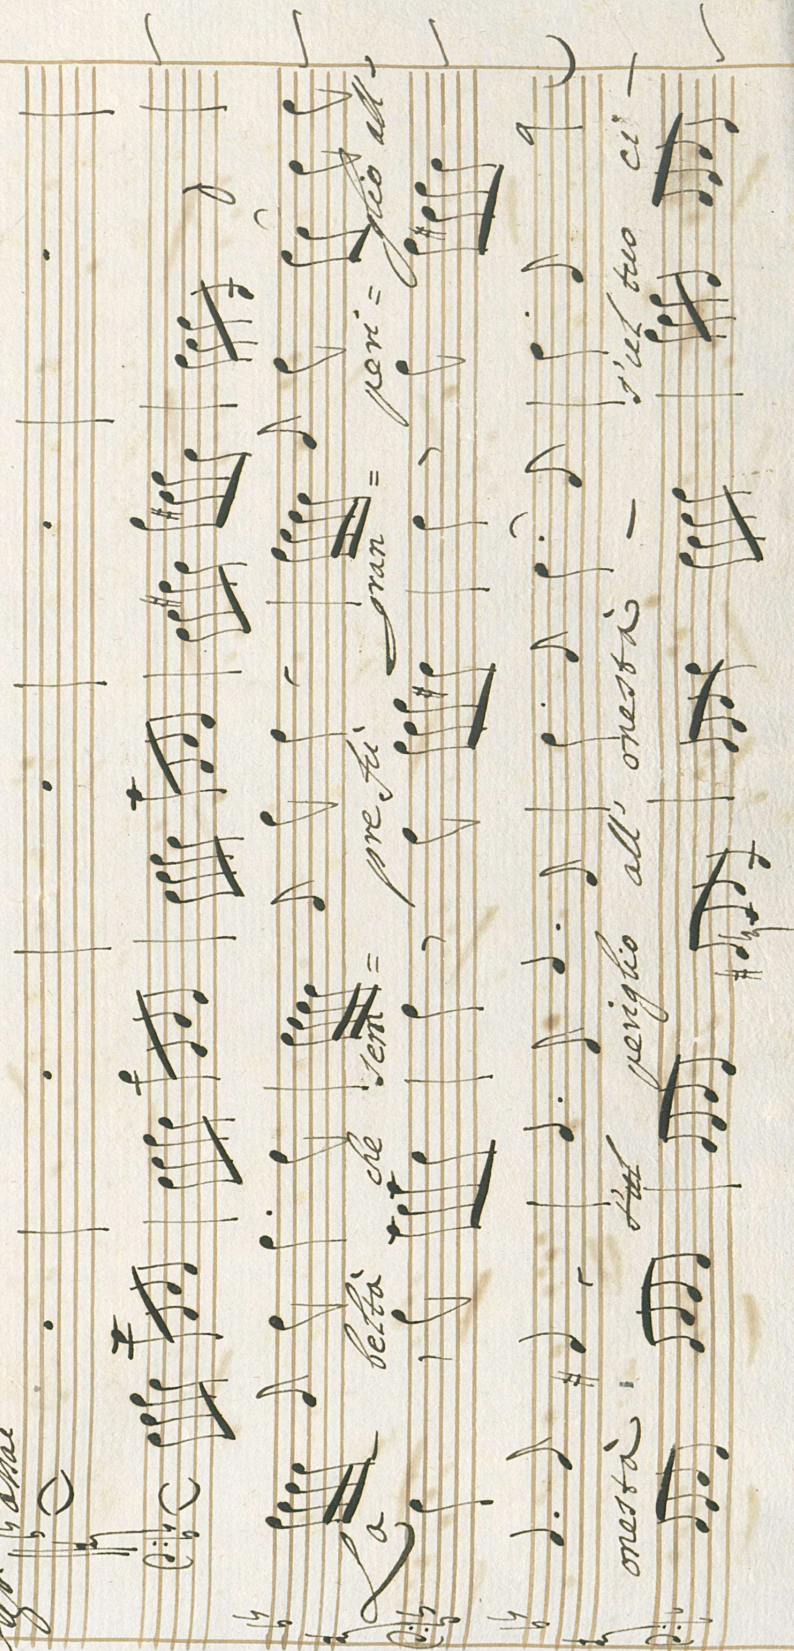 La beltà che sem = pre fù gran = peri = glio all'
onestà. s'ul periglio all' onestà – s'ul tuo ci –